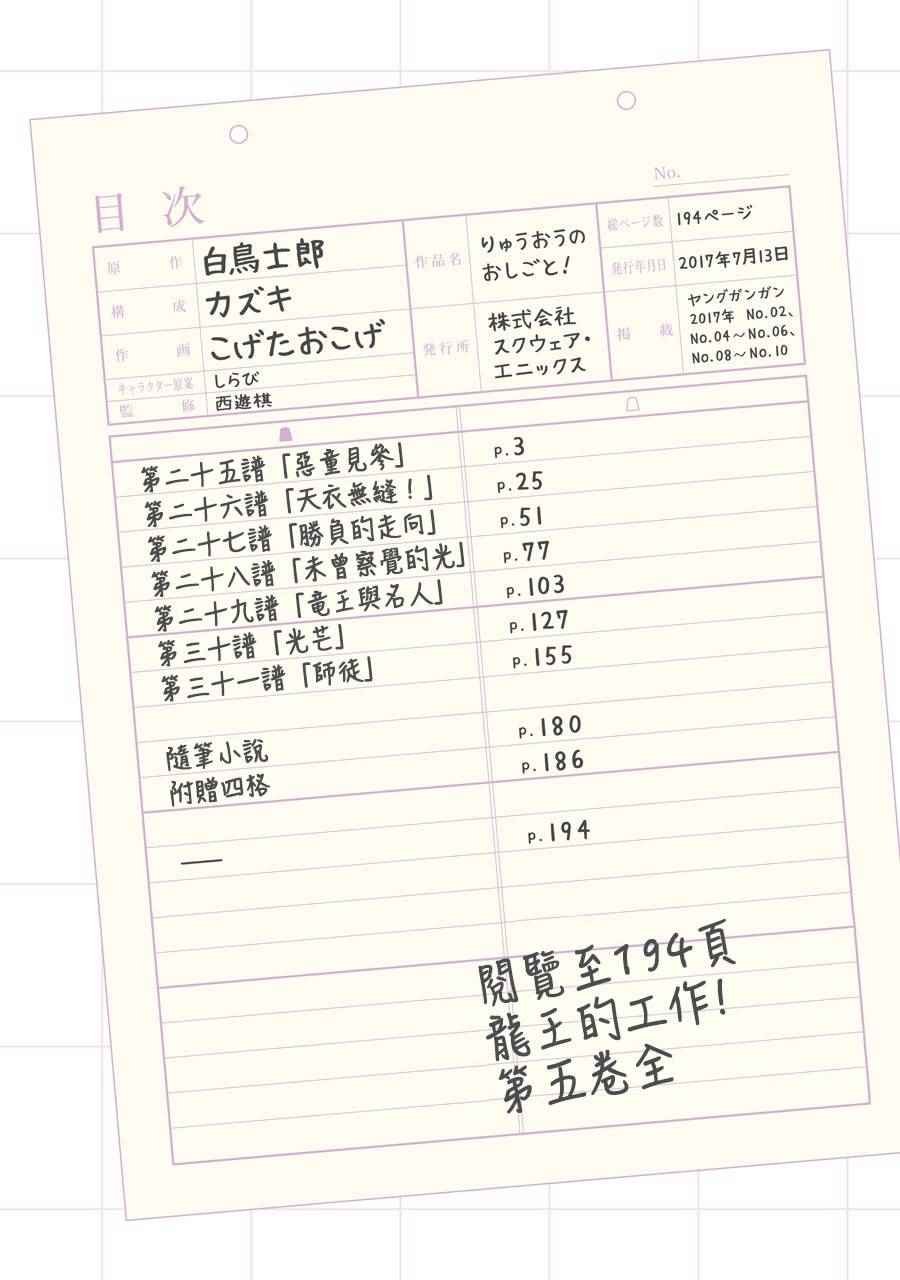 目次
No.
原作 白鳥士郎
構成 カズキ
作画 こげたおこげ
キャラクター原案 しらび
監修 西遊棋
作品名 りゅうおうの
おしごと!
発行所 株式会社
スクウェア・
エニックス
総ページ数 194ページ
発行年月日 2017年7月13日
掲載 ヤングガンガン
2017年 No.02、
No.04～No.06、
No.08～No.10
第二十五譜「惡童見參」 p.3
第二十六譜「天衣無縫！」 p.25
第二十七譜「勝負的走向」 p.51
第二十八譜「未曾察覺的光」 p.77
第二十九譜「竜王與名人」 p.103
第三十譜「光芒」 p.127
第三十一譜「師徒」 p.155
隨筆小說 p.180
附贈四格 p.186
— p.194
閱覽至194頁
龍王的工作!
第五卷全